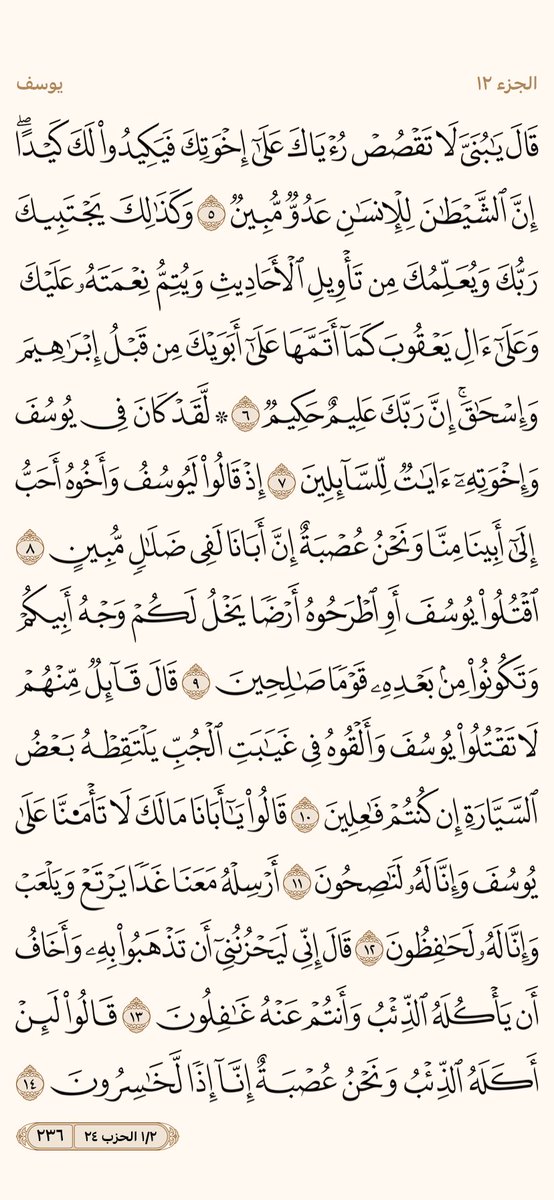 الجزء ١٢
يوسف
قَالَ يَٰبُنَىَّ لَا تَقۡصُصۡ رُءۡيَاكَ عَلَىٰٓ إِخۡوَتِكَ فَيَكِيدُواْ لَكَ كَيۡدًاۖ
إِنَّ ٱلشَّيۡطَٰنَ لِلۡإِنسَٰنِ عَدُوّٞ مُّبِينٞ ٥ وَكَذَٰلِكَ يَجۡتَبِيكَ
رَبُّكَ وَيُعَلِّمُكَ مِن تَأۡوِيلِ ٱلۡأَحَادِيثِ وَيُتِمُّ نِعۡمَتَهُۥ عَلَيۡكَ
وَعَلَىٰٓ ءَالِ يَعۡقُوبَ كَمَآ أَتَمَّهَا عَلَىٰٓ أَبَوَيۡكَ مِن قَبۡلُ إِبۡرَٰهِيمَ
وَإِسۡحَٰقَۚ إِنَّ رَبَّكَ عَلِيمٌ حَكِيمٞ ٦ ۞ لَّقَدۡ كَانَ فِي يُوسُفَ
وَإِخۡوَتِهِۦٓ ءَايَٰتٞ لِّلسَّآئِلِينَ ٧ إِذۡ قَالُواْ لَيُوسُفُ وَأَخُوهُ أَحَبُّ
إِلَىٰٓ أَبِينَا مِنَّا وَنَحۡنُ عُصۡبَةٌ إِنَّ أَبَانَا لَفِي ضَلَٰلٖ مُّبِينٍ ٨
ٱقۡتُلُواْ يُوسُفَ أَوِ ٱطۡرَحُوهُ أَرۡضٗا يَخۡلُ لَكُمۡ وَجۡهُ أَبِيكُمۡ
وَتَكُونُواْ مِنۢ بَعۡدِهِۦ قَوۡمٗا صَٰلِحِينَ ٩ قَالَ قَآئِلٞ مِّنۡهُمۡ
لَا تَقۡتُلُواْ يُوسُفَ وَأَلۡقُوهُ فِي غَيَٰبَتِ ٱلۡجُبِّ يَلۡتَقِطۡهُ بَعۡضُ
ٱلسَّيَّارَةِ إِن كُنتُمۡ فَٰعِلِينَ ١٠ قَالُواْ يَٰٓأَبَانَا مَا لَكَ لَا تَأۡمَ۬نَّا عَلَىٰ
يُوسُفَ وَإِنَّا لَهُۥ لَنَٰصِحُونَ ١١ أَرۡسِلۡهُ مَعَنَا غَدٗا يَرۡتَعۡ وَيَلۡعَبۡ
وَإِنَّا لَهُۥ لَحَٰفِظُونَ ١٢ قَالَ إِنِّي لَيَحۡزُنُنِيٓ أَن تَذۡهَبُواْ بِهِۦ وَأَخَافُ
أَن يَأۡكُلَهُ ٱلذِّئۡبُ وَأَنتُمۡ عَنۡهُ غَٰفِلُونَ ١٣ قَالُواْ لَئِنۡ
أَكَلَهُ ٱلذِّئۡبُ وَنَحۡنُ عُصۡبَةٌ إِنَّآ إِذٗا لَّخَٰسِرُونَ ١٤
١/٢ الحزب ٢٤
٢٣٦